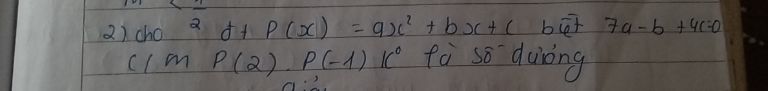 2) cho 2 đt P(x) = ax² + bx + c biết 7a - b + 4c = 0
C/m P(2). P(-1) k° fà số dương